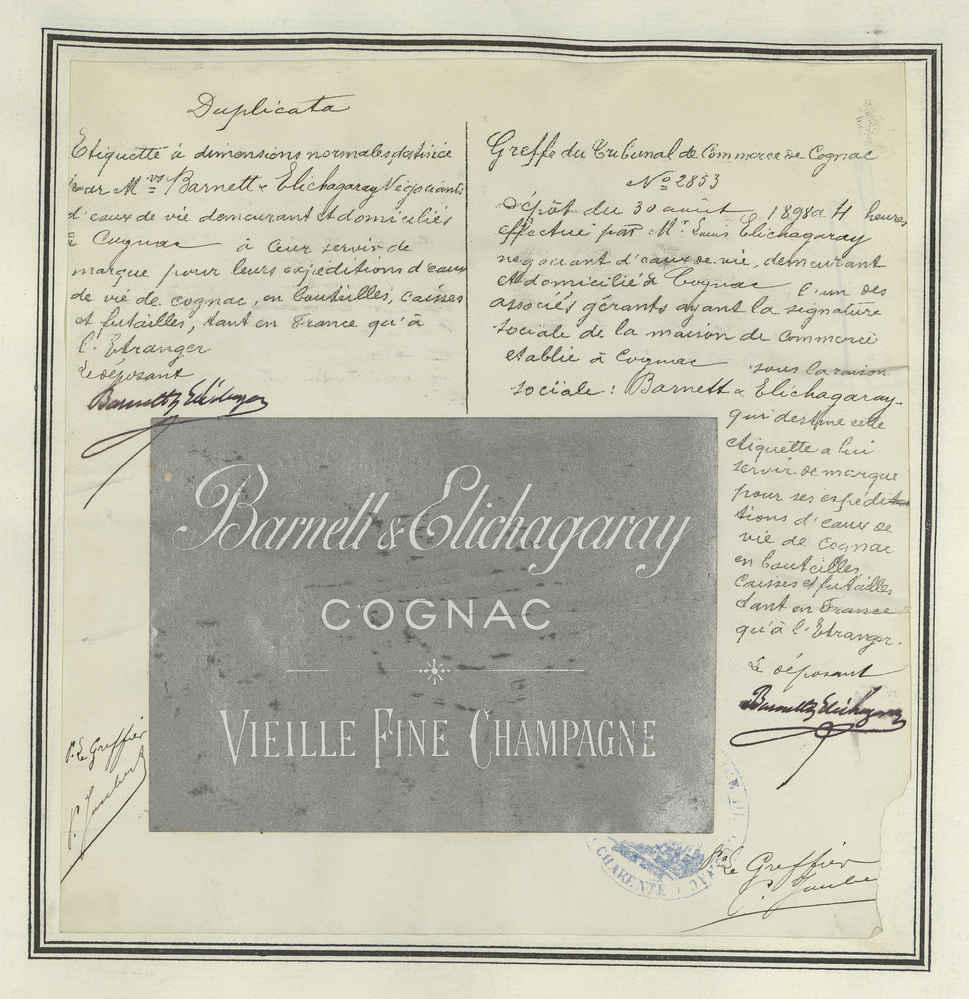 Duplicata
Etiquette à dimensions normales destinée
par M.rs Barnett & Elichagaray Négociants
d'eaux de vie demeurant et domiciliés
à Cognac à leur servir de
marque pour leurs expéditions d'eaux
de vie de cognac, en bouteilles, caisses
et futailles, tant en France qu'à
l'Etranger
Le déposant
Barnett & Elichagaray
Greffe du Tribunal de Commerce de Cognac
No 2853
Dépôt du 30 août 1898 à 4 heures
effectué par Mr. Louis Elichagaray
négociant d'eaux de vie, demeurant
et domicilié à Cognac l'un des
associés gérants ayant la signature
sociale de la maison de Commerce
établie à Cognac sous la raison
sociale : Barnett & Elichagaray
qui destine cette
étiquette a lui
servir de marque
pour ses expédi
tions d'eaux de
vie de Cognac
en bouteilles,
caisses et futailles
tant en France
qu'à l'Etranger.
Le déposant
Barnett & Elichagaray
Barnett & Elichagaray
COGNAC
VIEILLE FINE CHAMPAGNE
P. Le Greffier
CHARENTE
P. Le Greffier